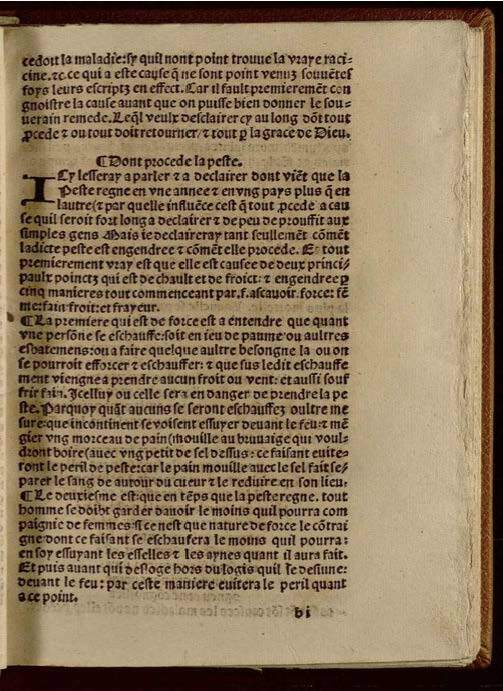 cedoit la maladie: sy quil nont point trouve la vraye raci-
cine. ⁊c. ce qui a este cause q̃ ne sont point venuz souvẽtes
foys leurs escriptz en effect. Car il fault premieremẽt con
gnoistre la cause auant que on puisse bien donner le sou-
uerain remede. Leq̃l veulx desclairer cy au long dõt tout
ꝓcede ⁊ ou tout doit retourner/ ⁊ tout ꝑ la grace de Dieu.
¶ Dont procede la peste.
ICy lesseray a parler ⁊ a declairer dont viẽt que la
Peste regne en vne annee ⁊ en vng pays plus q̃ en
lautre (⁊ par quelle influẽce cest q̃ tout ꝓcede a cau
se quil seroit fort long a declairer ⁊ de peu de prouffit aux
simples gens Mais ie declaireray tant seullemẽt cõmẽt
ladicte peste est engendree ⁊ cõmẽt elle procede. Et tout
premierement vray est que elle est causee de deux princi/
paulx poinctz qui est de chault et de froict: ⁊ engendree ꝑ
cinq manieres tout commenceant par .f. ascauoir. force: fẽ
me: fain froit: et frayeur.
¶ La premiere qui est de force est a entendre que quant
vne persõne se eschauffe: soit en ieu de paume ou aultres
esbatemens: ou a faire quelque aultre besongne la ou on
se pourroit efforcer ⁊ eschauffer: ⁊ que sus ledit eschauffe
ment viengne a prendre aucun froit ou vent: et aussi souf
frir fain. Icelluy ou celle sera en danger de prendre la pe
ste. Parquoy quãt aucuns se seront eschauffez oultre me
sure: que incontinent se voisent essuyer deuant le feu: ⁊ mẽ
gier vng morceau de pain (mouille au bruuaige qui voul-
dront boire (auec vng petit de sel dessus: ce faisant euite-
ront le peril de peste: car le pain mouille auec le sel fait se/
parer le sang de autour du cueur ⁊ le reduire en son lieu.
¶ Le deuxiesme est: que en tẽps que la peste regne. tout
homme se doibt garder dauoir le moins quil pourra com
paignie de femmes: si ce nest que nature de force le cõtrai
gne dont ce faisant se eschaufera le moins quil pourra:
en soy essuyant les esselles ⁊ les aynes quant il aura fait.
Et puis auant qui desloge hors du logis quil se desiune:
deuant le feu: par ceste maniere euitera le peril quant
a ce point.
b i